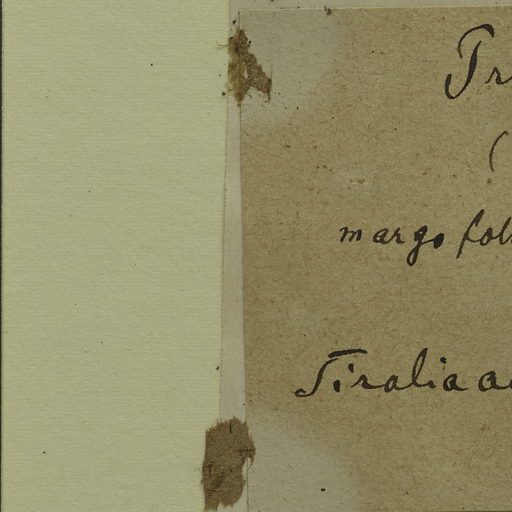 Tr
(
margo fol
Tiralia a